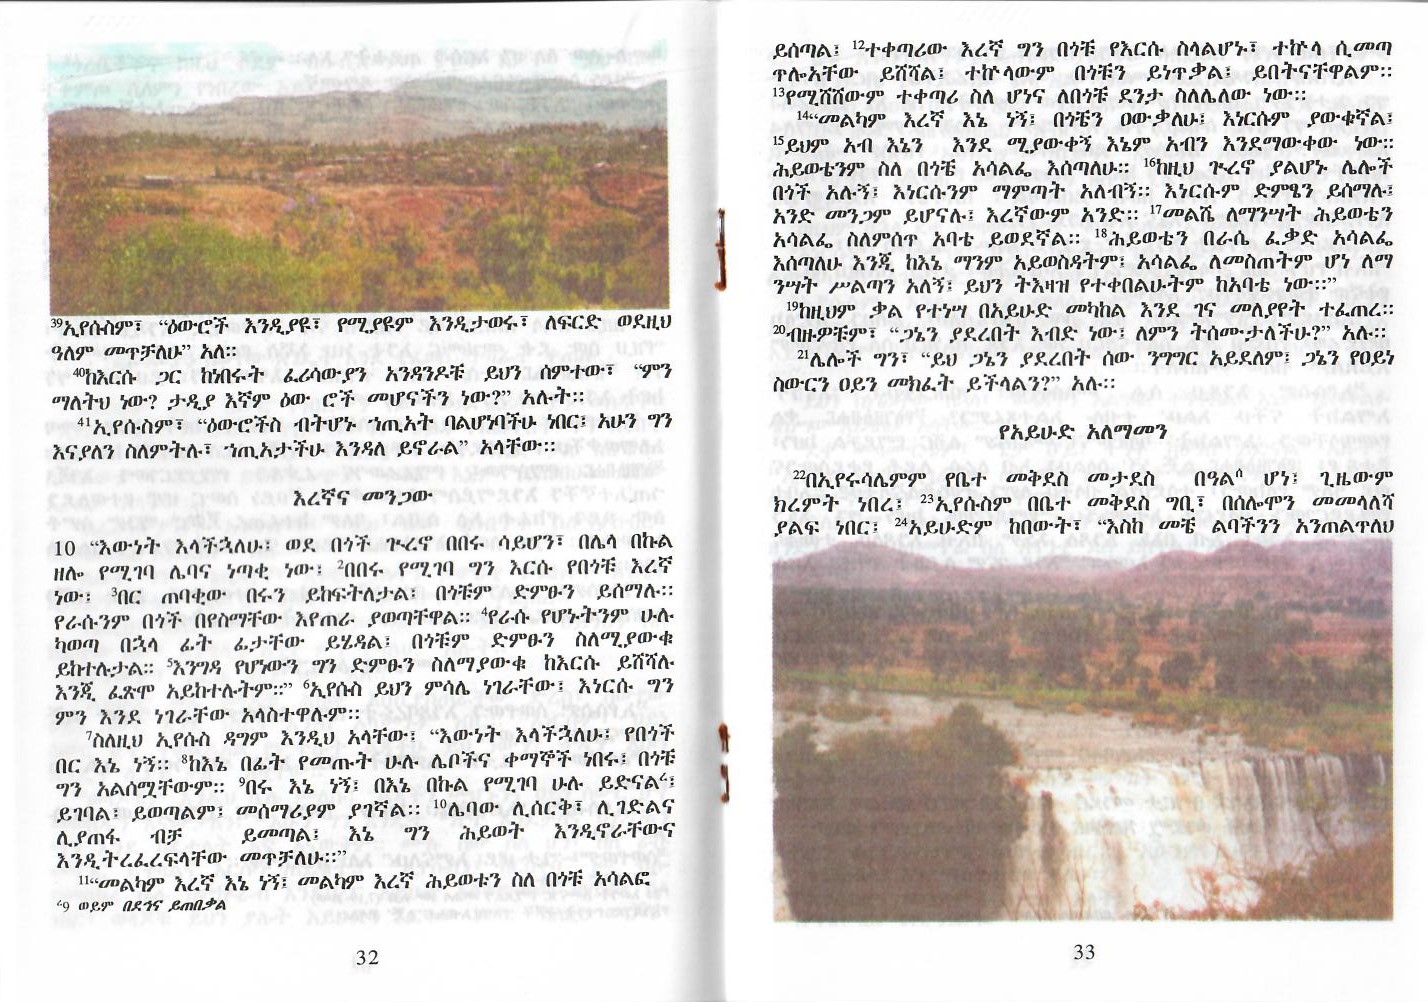 ³⁹ኢየሱስም፣ “ዕውሮች እንዲያዩ፣ የሚያዩም እንዲታወሩ፣ ለፍርድ ወደዚህ
ዓለም መጥቻለሁ” አለ።
⁴⁰ከእርሱ ጋር ከነበሩት ፈሪሳውያን አንዳንዶቹ ይህን ሰምተው፣ “ምን
ማለትህ ነው? ታዲያ እኛም ዕው ሮች መሆናችን ነው?” አሉት።
⁴¹ኢየሱስም፣ “ዕውሮችስ ብትሆኑ ኀጢአት ባልሆነባችሁ ነበር፤ አሁን ግን
እናያለን ስለምትሉ፣ ኀጢአታችሁ እንዳለ ይኖራል” አላቸው።
እረኛና መንጋው
10 “እውነት እላችኋለሁ፤ ወደ በጎች ጕረኖ በበሩ ሳይሆን፣ በሌላ በኩል
ዘሎ የሚገባ ሌባና ነጣቂ ነው፤ ²በበሩ የሚገባ ግን እርሱ የበጎቹ እረኛ
ነው፤ ³በር ጠባቂው በሩን ይከፍትለታል፤ በጎቹም ድምፁን ይሰማሉ።
የራሱንም በጎች በየስማቸው እየጠራ ያወጣቸዋል። ⁴የራሱ የሆኑትንም ሁሉ
ካወጣ በኋላ ፊት ፊታቸው ይሄዳል፤ በጎቹም ድምፁን ስለሚያውቁ
ይከተሉታል። ⁵እንግዳ የሆነውን ግን ድምፁን ስለማያውቁ ከእርሱ ይሸሻሉ
እንጂ ፈጽሞ አይከተሉትም።” ⁶ኢየሱስ ይህን ምሳሌ ነገራቸው፤ እነርሱ ግን
ምን እንደ ነገራቸው አላስተዋሉም።
⁷ስለዚህ ኢየሱስ ዳግም እንዲህ አላቸው፤ “እውነት እላችኋለሁ፤ የበጎች
በር እኔ ነኝ። ⁸ከእኔ በፊት የመጡት ሁሉ ሌቦችና ቀማኞች ነበሩ፤ በጎቹ
ግን አልሰሟቸውም። ⁹በሩ እኔ ነኝ፤ በእኔ በኩል የሚገባ ሁሉ ይድናልሩ፤
ይገባል፤ ይወጣልም፤ መሰማሪያም ያገኛል። ¹⁰ሌባው ሊሰርቅ፣ ሊገድልና
ሊያጠፋ ብቻ ይመጣል፤ እኔ ግን ሕይወት እንዲኖራቸውና
እንዲትረፈረፍላቸው መጥቻለሁ።”
¹¹“መልካም እረኛ እኔ ነኝ፤ መልካም እረኛ ሕይወቱን ስለ በጎቹ አሳልፎ
ሩ9 ወይም በደኅና ይጠበቃል
32
ይሰጣል፤ ¹²ተቀጣሪው እረኛ ግን በጎቹ የእርሱ ስላልሆኑ፣ ተኵላ ሲመጣ
ጥሎአቸው ይሸሻል፤ ተኵላውም በጎቹን ይነጥቃል፤ ይበትናቸዋልም።
¹³የሚሸሸውም ተቀጣሪ ስለ ሆነና ለበጎቹ ደንታ ስለሌለው ነው።
¹⁴“መልካም እረኛ እኔ ነኝ፤ በጎቼን ዐውቃለሁ፤ እነርሱም ያውቁኛል፤
¹⁵ይህም አብ እኔን እንደ ሚያውቀኝ እኔም አብን እንደማውቀው ነው።
ሕይወቴንም ስለ በጎቼ አሳልፌ እሰጣለሁ። ¹⁶ከዚህ ጕረኖ ያልሆኑ ሌሎች
በጎች አሉኝ፤ እነርሱንም ማምጣት አለብኝ። እነርሱም ድምፄን ይሰማሉ፤
አንድ መንጋም ይሆናሉ፤ እረኛውም አንድ። ¹⁷መልሼ ለማንሣት ሕይወቴን
አሳልፌ ስለምሰጥ አባቴ ይወደኛል። ¹⁸ሕይወቴን በራሴ ፈቃድ አሳልፌ
እሰጣለሁ እንጂ ከእኔ ማንም አይወስዳትም፤ አሳልፌ ለመስጠትም ሆነ ለማ
ንሣት ሥልጣን አለኝ፤ ይህን ትእዛዝ የተቀበልሁትም ከአባቴ ነው።”
¹⁹ከዚህም ቃል የተነሣ በአይሁድ መካከል እንደ ገና መለያየት ተፈጠረ።
²⁰ብዙዎቹም፣ “ጋኔን ያደረበት እብድ ነው፤ ለምን ትሰሙታላችሁ?” አሉ።
²¹ሌሎች ግን፣ “ይህ ጋኔን ያደረበት ሰው ንግግር አይደለም፤ ጋኔን የዐይነ
ስውርን ዐይን መክፈት ይችላልን?” አሉ።
የአይሁድ አለማመን
²²በኢየሩሳሌምም የቤተ መቅደስ መታደስ በዓልሰ ሆነ፤ ጊዜውም
ክረምት ነበረ፤ ²³ኢየሱስም በቤተ መቅደስ ግቢ፣ በሰሎሞን መመላለሻ
ያልፍ ነበር፤ ²⁴አይሁድም ከበውት፣ “እስከ መቼ ልባችንን አንጠልጥለህ
33